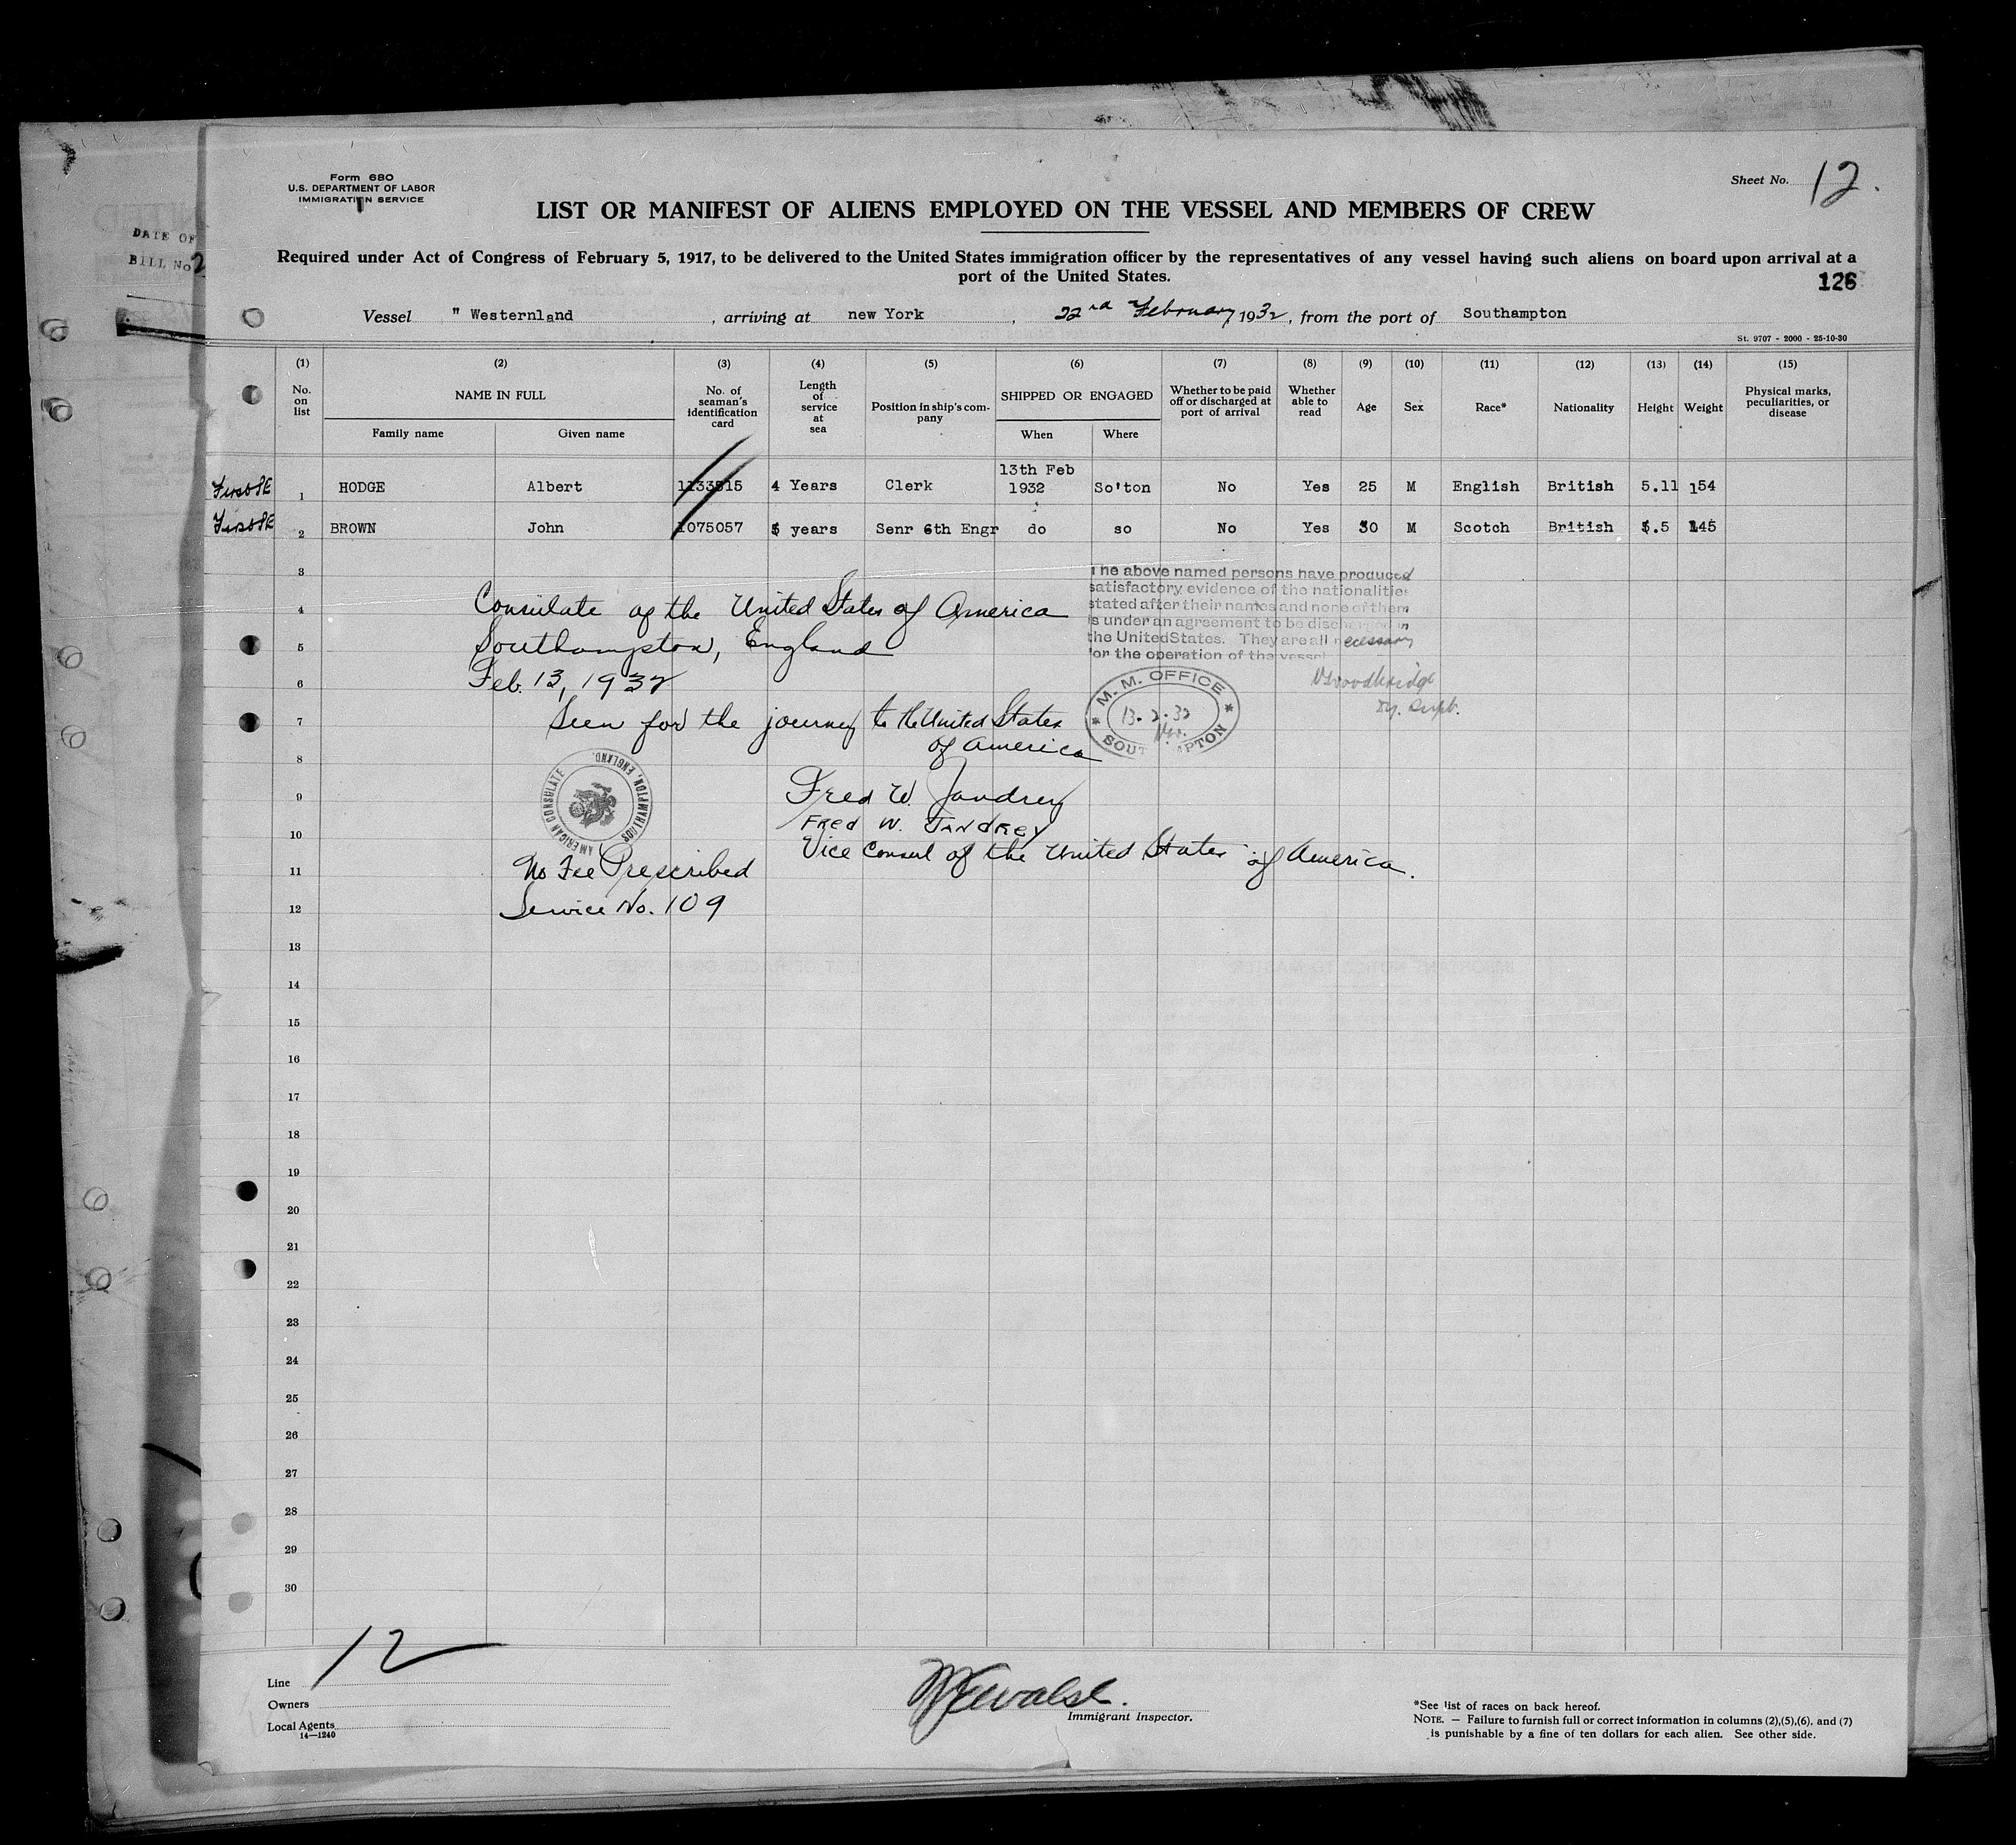 Form 680
U.S. DEPARTMENT OF LABOR
IMMIGRATION SERVICE
Sheet No. 12.
LIST OR MANIFEST OF ALIENS EMPLOYED ON THE VESSEL AND MEMBERS OF CREW
DATE OF
BILL No 2
Required under Act of Congress of February 5, 1917, to be delivered to the United States immigration officer by the representatives of any vessel having such aliens on board upon arrival at a
port of the United States.
126
Vessel " Westernland , arriving at new York , 22nd February, 1932, from the port of Southampton
St. 9707 - 2000 - 25-10-30
(1) (2) (3) (4) (5) (6) (7) (8) (9) (10) (11) (12) (13) (14) (15)
No. on list NAME IN FULL No. of seaman's identification card Length of service at sea Position in ship's com-pany SHIPPED OR ENGAGED Whether to be paid off or discharged at port of arrival Whether able to read Age Sex Race* Nationality Height Weight Physical marks, peculiarities, or disease
Family name Given name When Where
1 HODGE Albert 1133515 4 Years Clerk 13th Feb 1932 So'ton No Yes 25 M English British 5.11 154
2 BROWN John 1075057 years Senr 6th Engr do so No Yes 30 M Scotch British .5 145
3
4
5
6
7
8
9
10
11
12
13
14
15
16
17
18
19
20
21
22
23
24
25
26
27
28
29
30
The above named persons have produced
satisfactory evidence of the nationalities
stated after their names and none of them
is under an agreement to be discharged in
the United States. They are all necessary
for the operation of the vessel
Consulate of the United States of America
Southampton, England
Feb. 13, 1932
Seen for the journey to the United States
of America
M. M. OFFICE
13.2.32
SOUTHAMPTON
AMERICAN CONSULATE
SOUTHAMPTON, ENGLAND.
Fred W. Jandrey
FRED W. JANDREY
Vice Consul of the United States of America.
No Fee Prescribed
Service No. 109
12
Line
Owners
Local Agents
14—1240
Immigrant Inspector.
*See list of races on back hereof.
NOTE. — Failure to furnish full or correct information in columns (2),(5),(6), and (7)
is punishable by a fine of ten dollars for each alien. See other side.